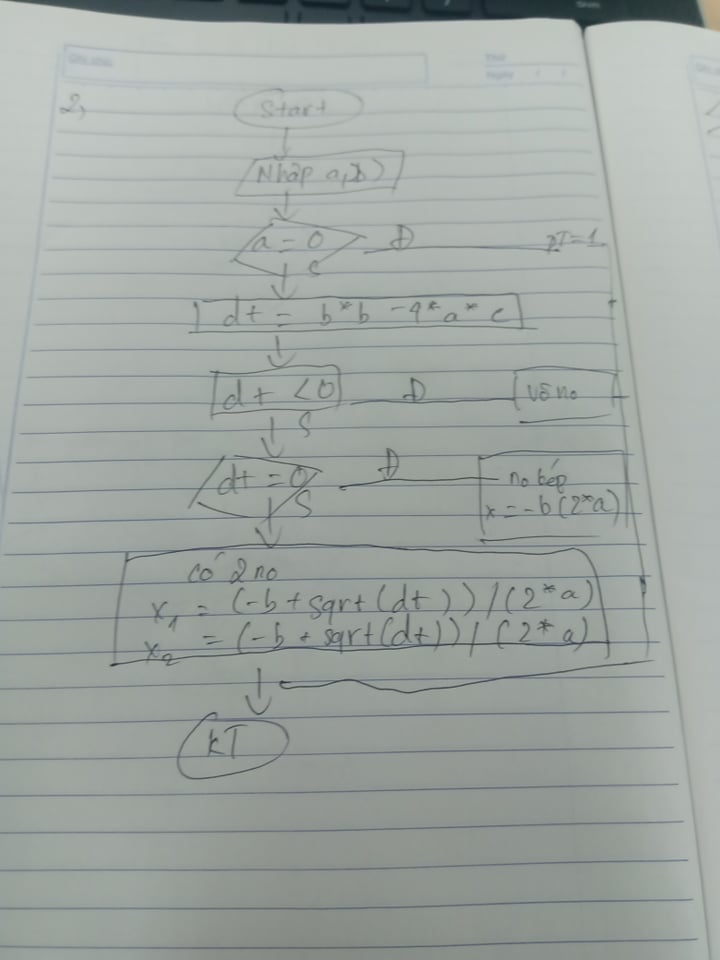 2,
Start
Nhập a,b)
a = 0 Đ PT=1
S
dt = b*b - 4*a*c
dt < 0 Đ Vô no
S
dt = 0 Đ no kép
S x = -b(2*a)
có 2 no
x1 = (-b + sqrt(dt)) / (2*a)
x2 = (-b + sqrt(dt)) / (2*a)
KT